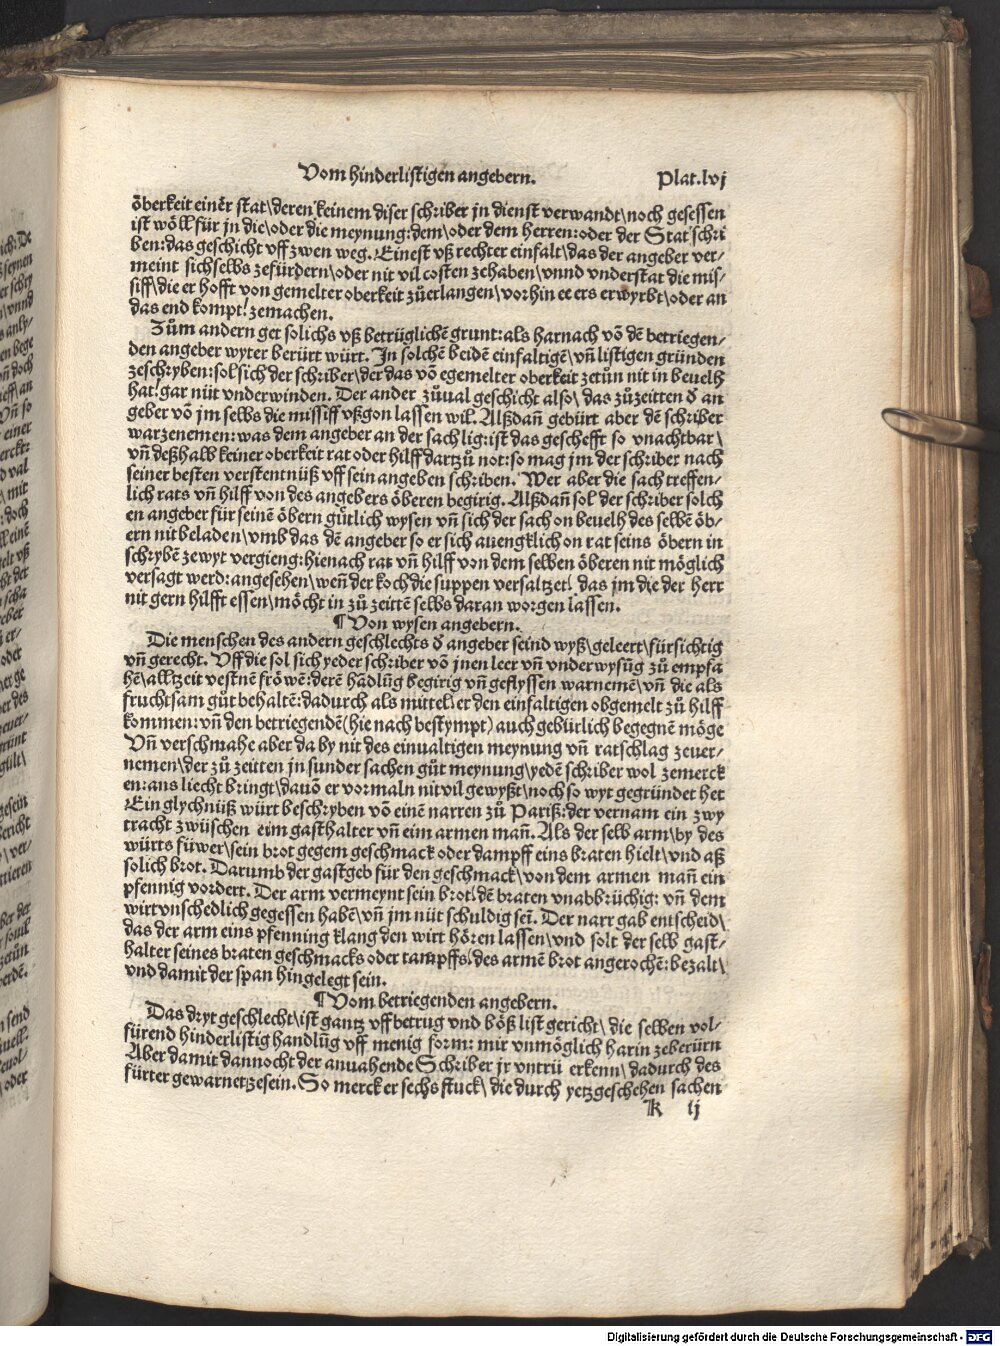 Vom hinderlistigen angebern. Plat.lvj
öberkeit einer stat\deren keinem diser schriber jn dienst verwandt\noch gesessen
ist wöll für jn die\oder die meynung:dem\oder dem herren:oder der Stat schri
ben:das geschicht vff zwen weg. Einest vß rechter einfalt\das der angeber ver⸗
meint sichselbs zefürdern\oder nit vil costen zehaben\vnnd vnderstat die mis⸗
siff\die er hofft von gemelter oberkeit zůerlangen\vorhin ee ers erwyrbt\oder an
das end kompt! zemachen.
Zům andern get solichs vß betrüglichē grunt:als harnach vō dē betriegen⸗
den angeber wyter berürt würt. In solchē beidē einfaltigē\vn̄ listigen gründen
zeschryben:sol sich der schriber\der das vō egemelter oberkeit zetůn nit in beuelh
hat!gar nüt vnderwinden. Der ander zůual geschicht also\das zůzeitten ď an
geber vō jm selbs die missiff vßgon lassen wil. Alßdan̄ gebürt aber dē schriber
warzenemen:was dem angeber an der sach lig:ist das geschefft so vnachtbar\
vn̄ deßhalb keiner oberkeit rat oder hilff dartzů not:so mag jm der schriber nach
seiner besten verstentnüß vff sein angeben schriben. Wer aber die sach treffen⸗
lich rats vn̄ hilff von des angebers öberen begirig. Alßdan̄ sol der schriber solch
en angeber für seinē öbern gůtlich wysen vn̄ sich der sach on beuelh des selbē öb⸗
ern nit beladen\vmb das dē angeber so er sich auengklich on rat seins öbern in
schrybē zewyt vergieng:hienach rat vn̄ hilff von dem selben öberen nit möglich
versagt werd:angesehen\wen̄ der koch die suppen versaltzet! das jm die der herr
nit gern hilfft essen\möcht in zů zeittē selbs daran worgen lassen.
¶Von wysen angebern.
Die menschen des andern geschlechts ď angeber seind wyß\geleert\fürsichtig
vn̄ gerecht. Vff die sol sich yeder schriber vō jnen leer vn̄ vnderwysūg zů empfa
hē\alltzeit vestnē frōwē:derē hādlūg begirig vn̄ geflyssen warnemē\vn̄ die als
fruchtsam gůt behaltē:dadurch als mittel!er den einfaltigen obgemelt zů hilff
kommen:vn̄ den betriegendē(hie nach bestympt)auch gebürlich begegnē möge
Vn̄ verschmahe aber da by nit des einualtigen meynung vn̄ ratschlag zeuer⸗
nemen\der zů zeitten jn sunder sachen gůt meynung\yedē schriber wol zemerck
en:ans liecht bringt\dauō er vormaln nit vil gewyßt\noch so wyt gegründet het
Ein glychnüß würt beschryben vō einē narren zů Pariß:der vernam ein zwy
tracht zwüschen eim gasthalter vn̄ eim armen man̄. Als der selb arm\by des
würts füwer\sein brot gegem geschmack oder dampff eins braten hielt\vnd aß
solich brot. Darumb der gastgeb für den geschmack\von dem armen man̄ ein
pfennig vordert. Der arm vermeynt sein brot!dē braten vnabbrüchig: vn̄ dem
wirt vnschedlich gegessen habē\vn̄ jm nüt schuldig sei̅. Der narr gab entscheid\
das der arm eins pfenning klang den wirt hören lassen\vnd solt der selb gast⸗
halter seines braten geschmacks oder tampffs!des armē brot angerochē:bezalt\
vnd damit der span hingelegt sein.
¶Vom betriegenden angebern.
Das dryt geschlecht\ist gantz vff betrug vnd böß list gericht\ die selben vol⸗
fürend hinderlistig handlūg vff menig form: mir vnmöglich harin zeberürn
Aber damit dannocht der anuahende Schriber jr vntrü erkenn\dadurch des
fürter gewarnet zesein. So merck er sechs stuck\ die durch yetzgeschehen sachen
K ij
Digitalisierung gefördert durch die Deutsche Forschungsgemeinschaft - DFG